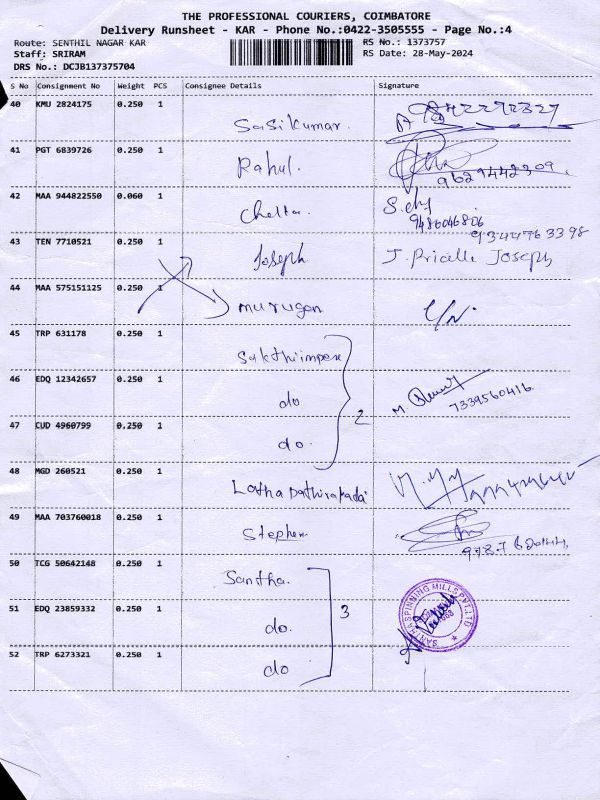 THE PROFESSIONAL COURIERS, COIMBATORE
Delivery Runsheet - KAR - Phone No.:0422-3505555 - Page No.:4
Route: SENTHIL NAGAR KAR
RS No.: 1373757
Staff: SRIRAM
RS Date: 28-May-2024
DRS No.: DCJB137375704
S No Consignment No Weight PCS Consignee Details Signature
40 KMU 2824175 0.250 1 Sasikumar.
41 PGT 6839726 0.250 1 Rahul. 9629442309.
42 MAA 944822550 0.060 1 Chella. 9486046806
43 TEN 7710521 0.250 1 Joseph 9344763398
J. Pricilla Joseph
44 MAA 575151125 0.250 1 murugan
45 TRP 631178 0.250 1
46 EDQ 12342657 0.250 1 do 2 7339560416
47 CUD 4960799 0.250 1 do.
48 MGD 260521 0.250 1 Latha
49 MAA 703760018 0.250 1 Stephen
50 TCG 50642148 0.250 1 Santha.
51 EDQ 23859332 0.250 1 do. 3 SANTHA SPINNING MILLS PVT.LTD
52 TRP 6273321 0.250 1 do